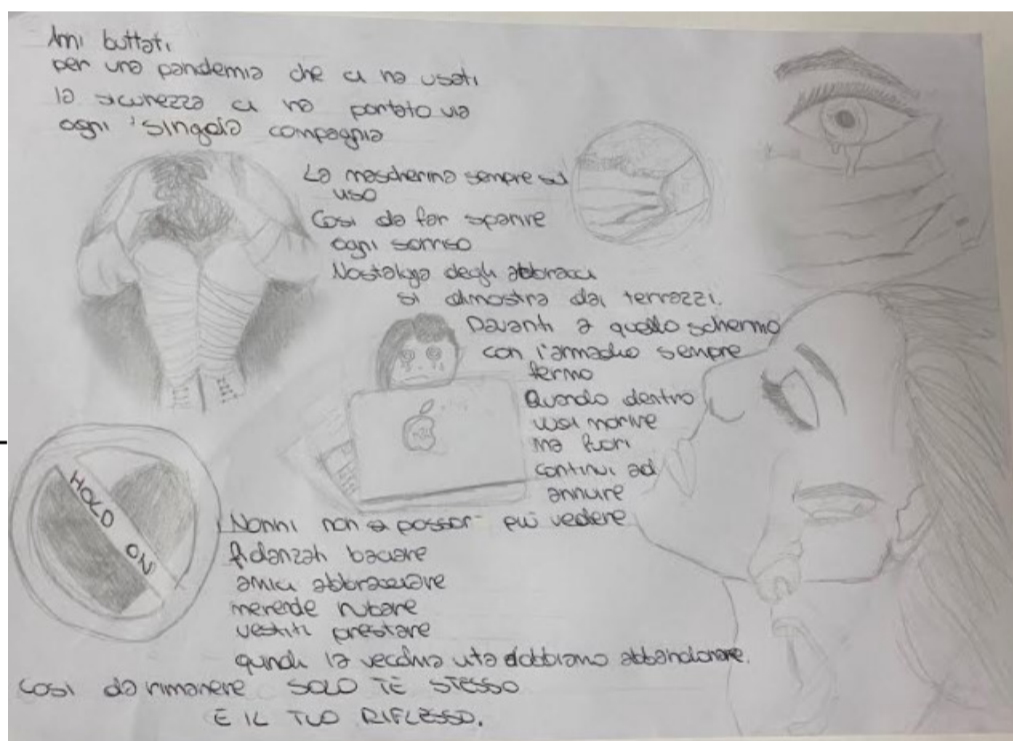 Anni buttati
per una pandemia che ci ha usati
la sicurezza ci ha portato via
ogni singola compagnia
La mascherina sempre sul
viso
Così da far sparire
ogni sorriso
Nostalgia degli abbracci
si dimostra dai terrazzi.
Davanti a quello schermo
con l'armadio sempre
fermo
Quando dentro
vuoi morire
ma fuori
continui ad
annuire
HOLD
ON
Nonni non si posson più vedere
fidanzati baciare
amici abbracciare
merende rubare
vestiti prestare
quindi la vecchia vita dobbiamo abbandonare.
Così da rimanere SOLO TE STESSO
E IL TUO RIFLESSO.